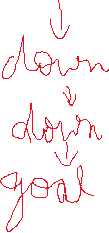 down
down
goal